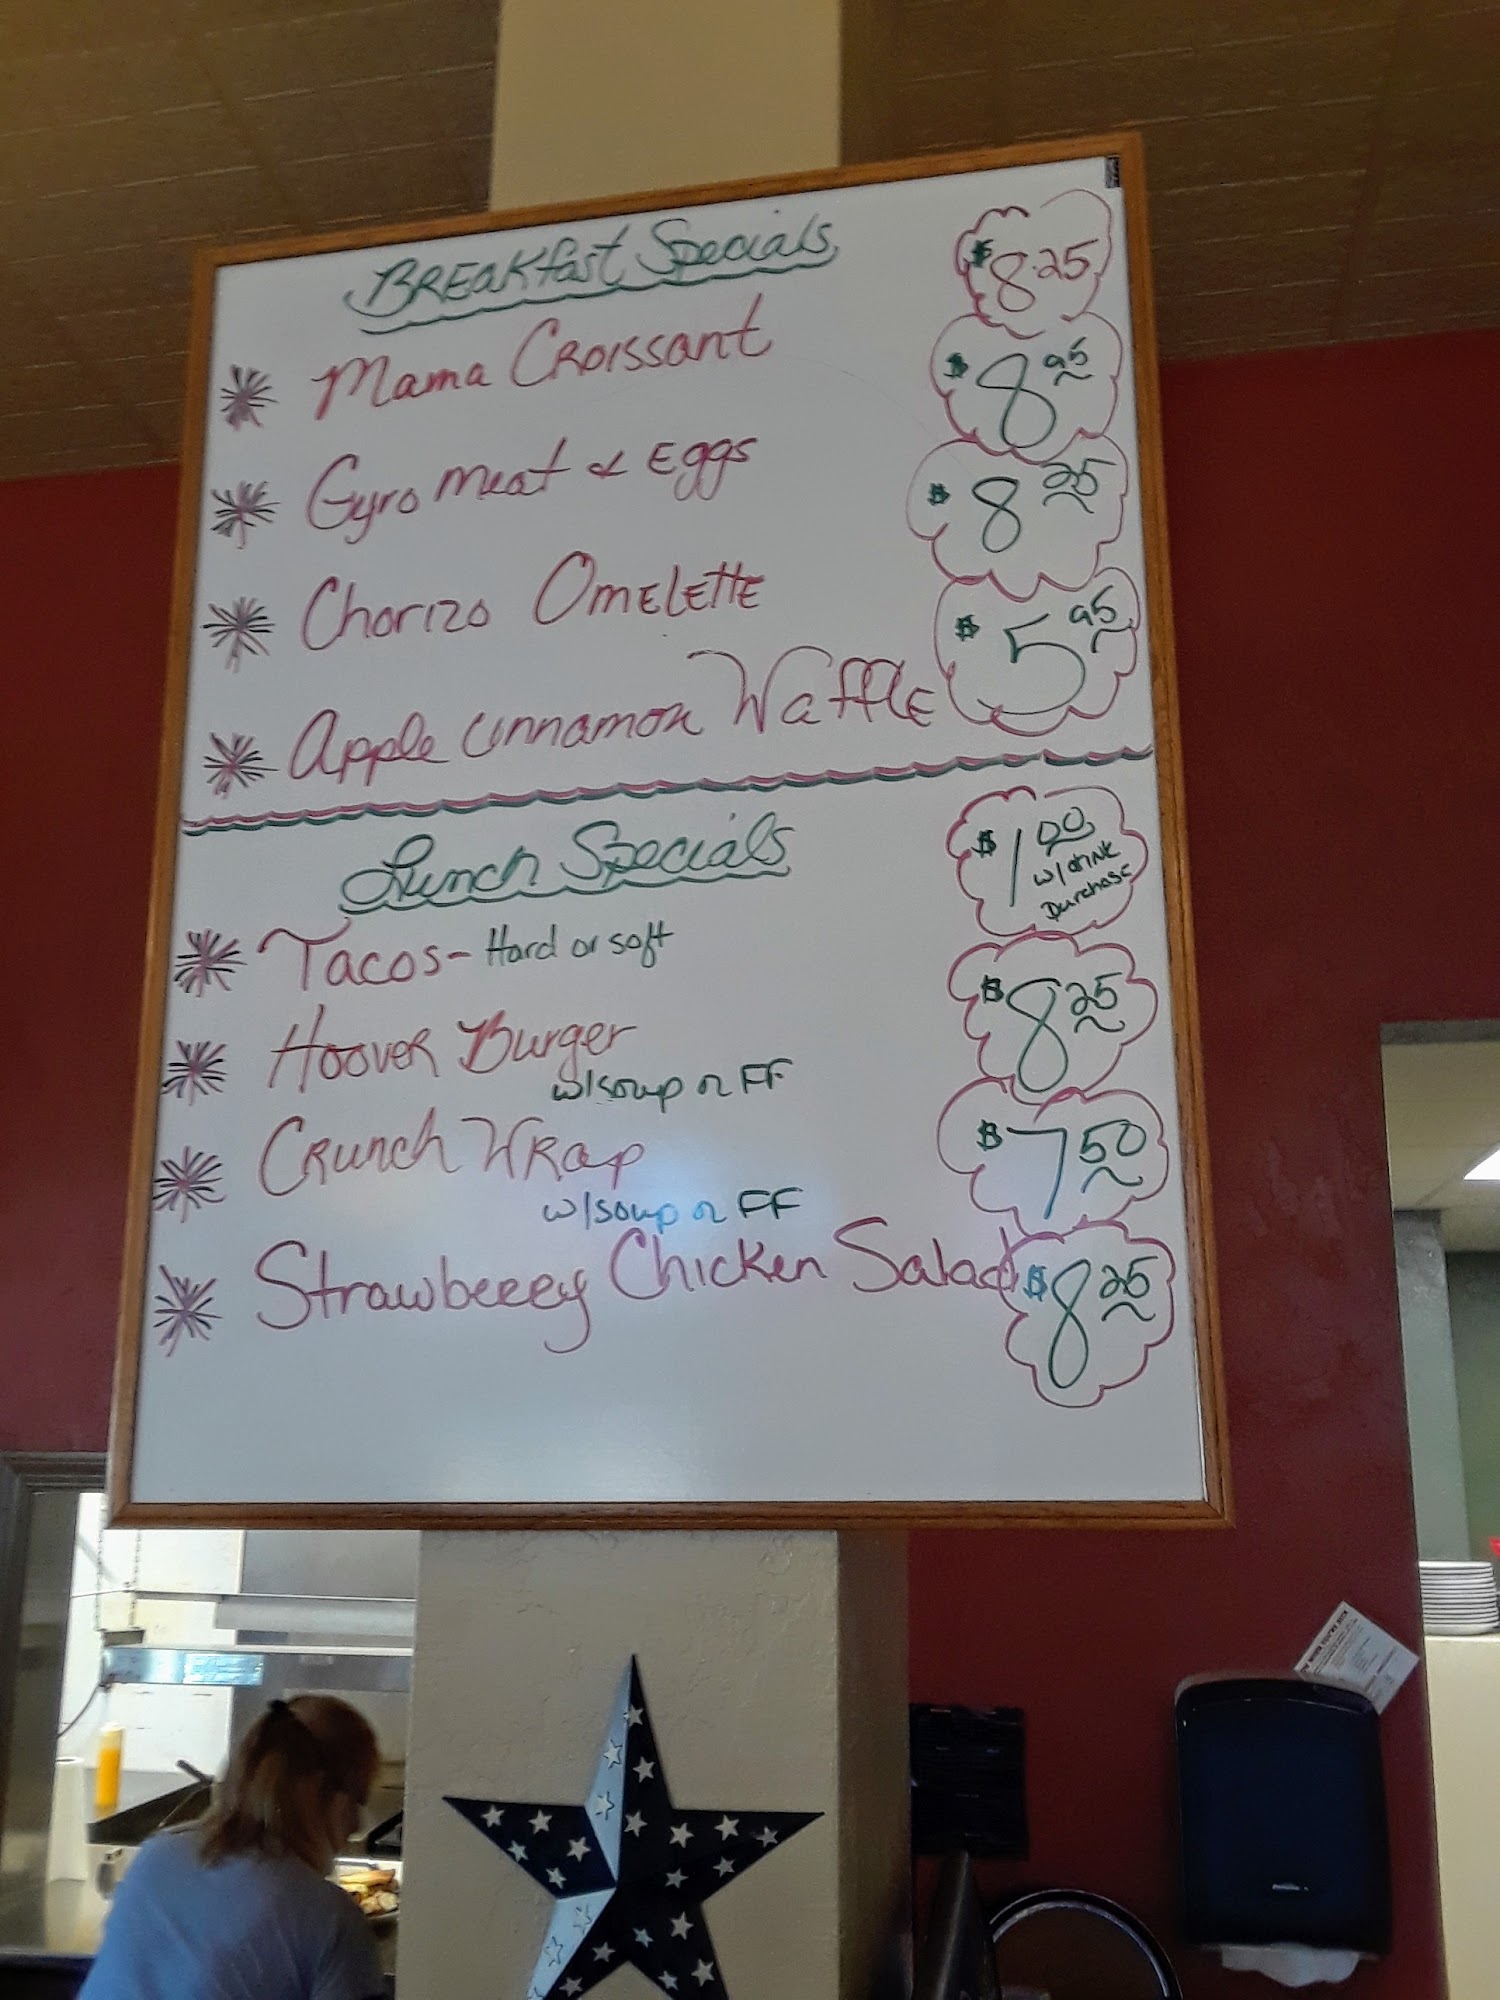 BREAKfast Specials
Mama CROissant $8.25
Gyro meat & EGGS $8 95
Chorizo OmELETTE $8 25
Apple cinnamon WaffLE $5 95
Lunch Specials
Tacos - Hard or soft $1 00 w/ drink Purchase
HoovER Burger $8 25
w/ soup or FF
CRunch WRap $7 50
w/ soup or FF
Strawbeeey Chicken Salad $8 25